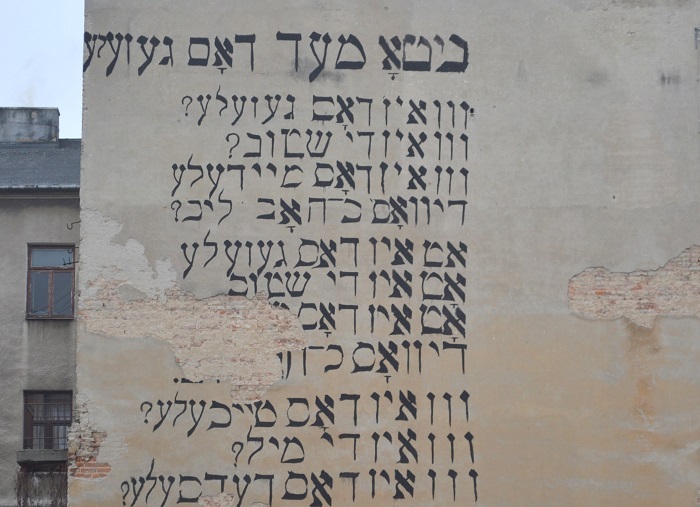 ניטאָ מער דאָס געזעלע
ווו איז דאָס געזעלע?
ווו איז די שטוב?
ווו איז דאָס מיידעלע
די וואָס כ־האָב ליב?
אָט איז דאָס געזעלע
אָט איז די שטוב
אָט איז דאָס
די וואָס
ווו איז דאָס טייכעלע?
ווו איז די מיל?
ווו איז דאָס דערפעלע?